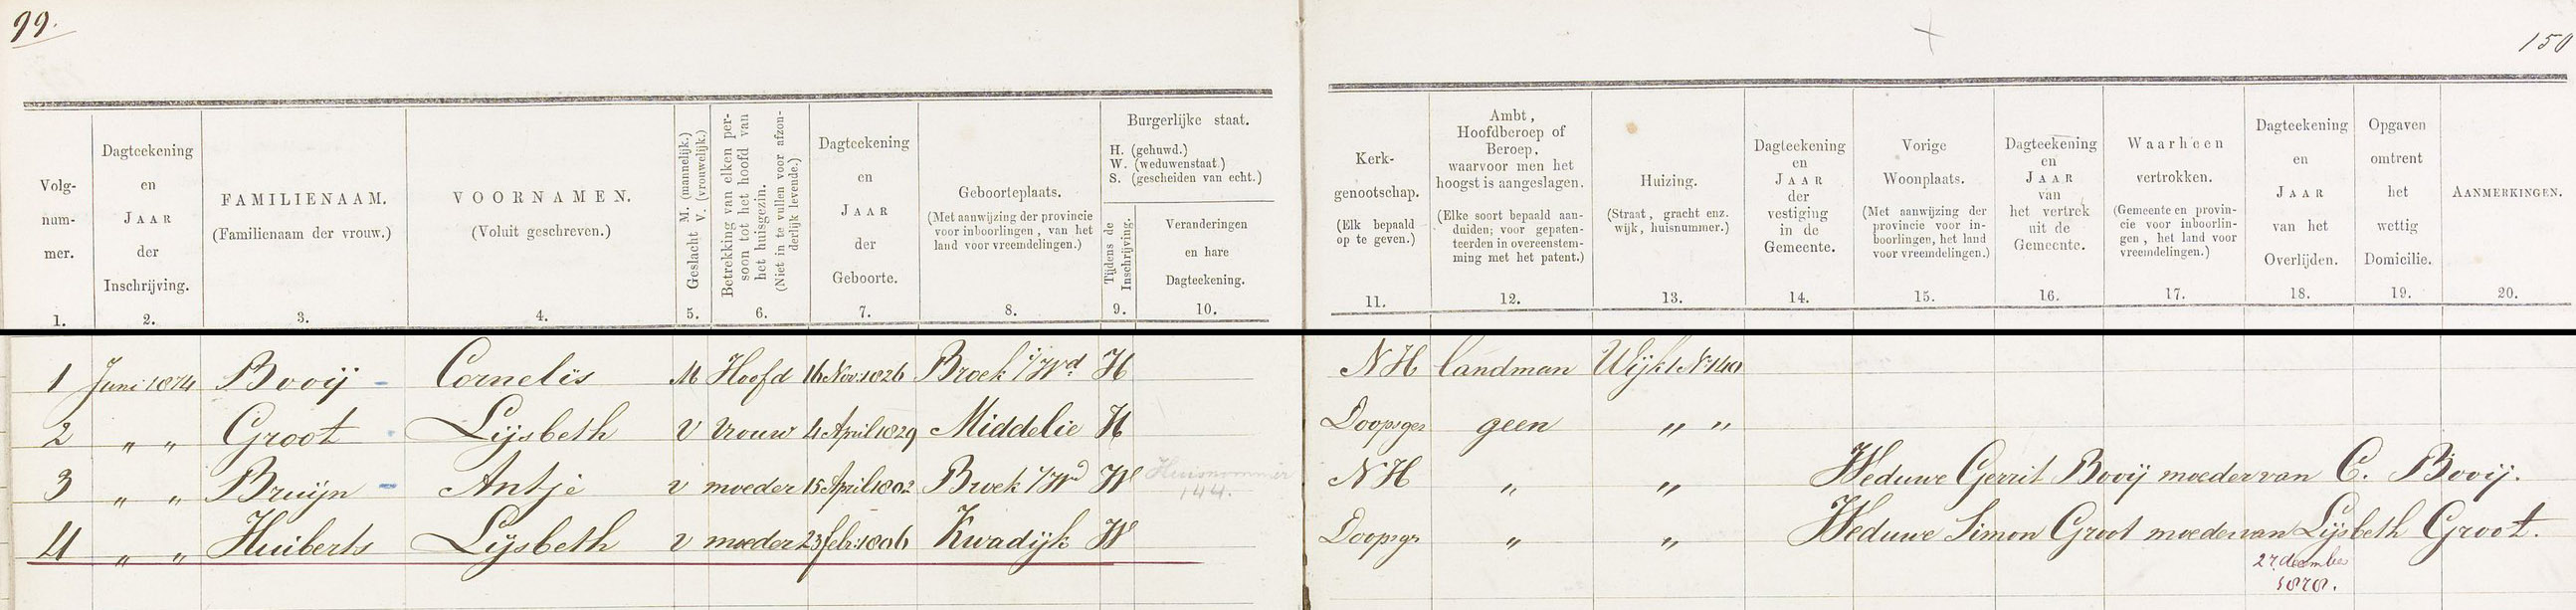 99.
150
Volg-
num-
mer.
1.
Dagteekening
en
JAAR
der
Inschrijving.
2.
FAMILIENAAM.
(Familienaam der vrouw.)
3.
VOORNAMEN.
(Voluit geschreven.)
4.
Geslacht M. (mannelijk.)
V. (vrouwelijk.)
5.
Betrekking van elken per-
soon tot het hoofd van
het huisgezin.
(Niet in te vullen voor afzon-
derlijk levende.)
6.
Dagteekening
en
JAAR
der
Geboorte.
7.
Geboorteplaats.
(Met aanwijzing der provincie
voor inboorlingen, van het
land voor vreemdelingen.)
8.
Burgerlijke staat.
H. (gehuwd.)
W. (weduwenstaat.)
S. (gescheiden van echt.)
Tijdens de
Inschrijving.
9.
Veranderingen
en hare
Dagteekening.
10.
Kerk-
genootschap.
(Elk bepaald
op te geven.)
11.
Ambt,
Hoofdberoep of
Beroep,
waarvoor men het
hoogst is aangeslagen.
(Elke soort bepaald aan-
duiden; voor gepaten-
teerden in overeenstem-
ming met het patent.)
12.
Huizing.
(Straat, gracht enz.
wijk, huisnummer.)
13.
Dagteekening
en
JAAR
der
vestiging
in de
Gemeente.
14.
Vorige
Woonplaats.
(Met aanwijzing der
provincie voor in-
boorlingen, het land
voor vreemdelingen.)
15.
Dagteekening
en
JAAR
van
het vertrek
uit de
Gemeente.
16.
Waarheen
vertrokken.
(Gemeente en provin-
cie voor inboorlin-
gen, het land voor
vreemdelingen.)
17.
Dagteekening
en
JAAR
van het
Overlijden.
18.
Opgaven
omtrent
het
wettig
Domicilie.
19.
AANMERKINGEN.
20.
1 Juni 1874 Booij Cornelis M Hoofd 16 Nov. 1826 Broek i/Wd. H NH landman Wijk 1 No 140
2 " " Groot Lijsbeth V Vrouw 4 April 1829 Middelie H Doopsgez geen " "
3 " " Bruijn Antje v moeder 15 April 1802 Broek i/Wd W Huisnommer NH " " Weduwe Gerrit Booij moeder van C. Booij.
144.
4 " " Huiberts Lijsbeth v moeder 23 febr. 1806 Kwadijk W Doopsgz " " Weduwe Simon Groot moeder van Lijsbeth Groot.
27 december
1878.